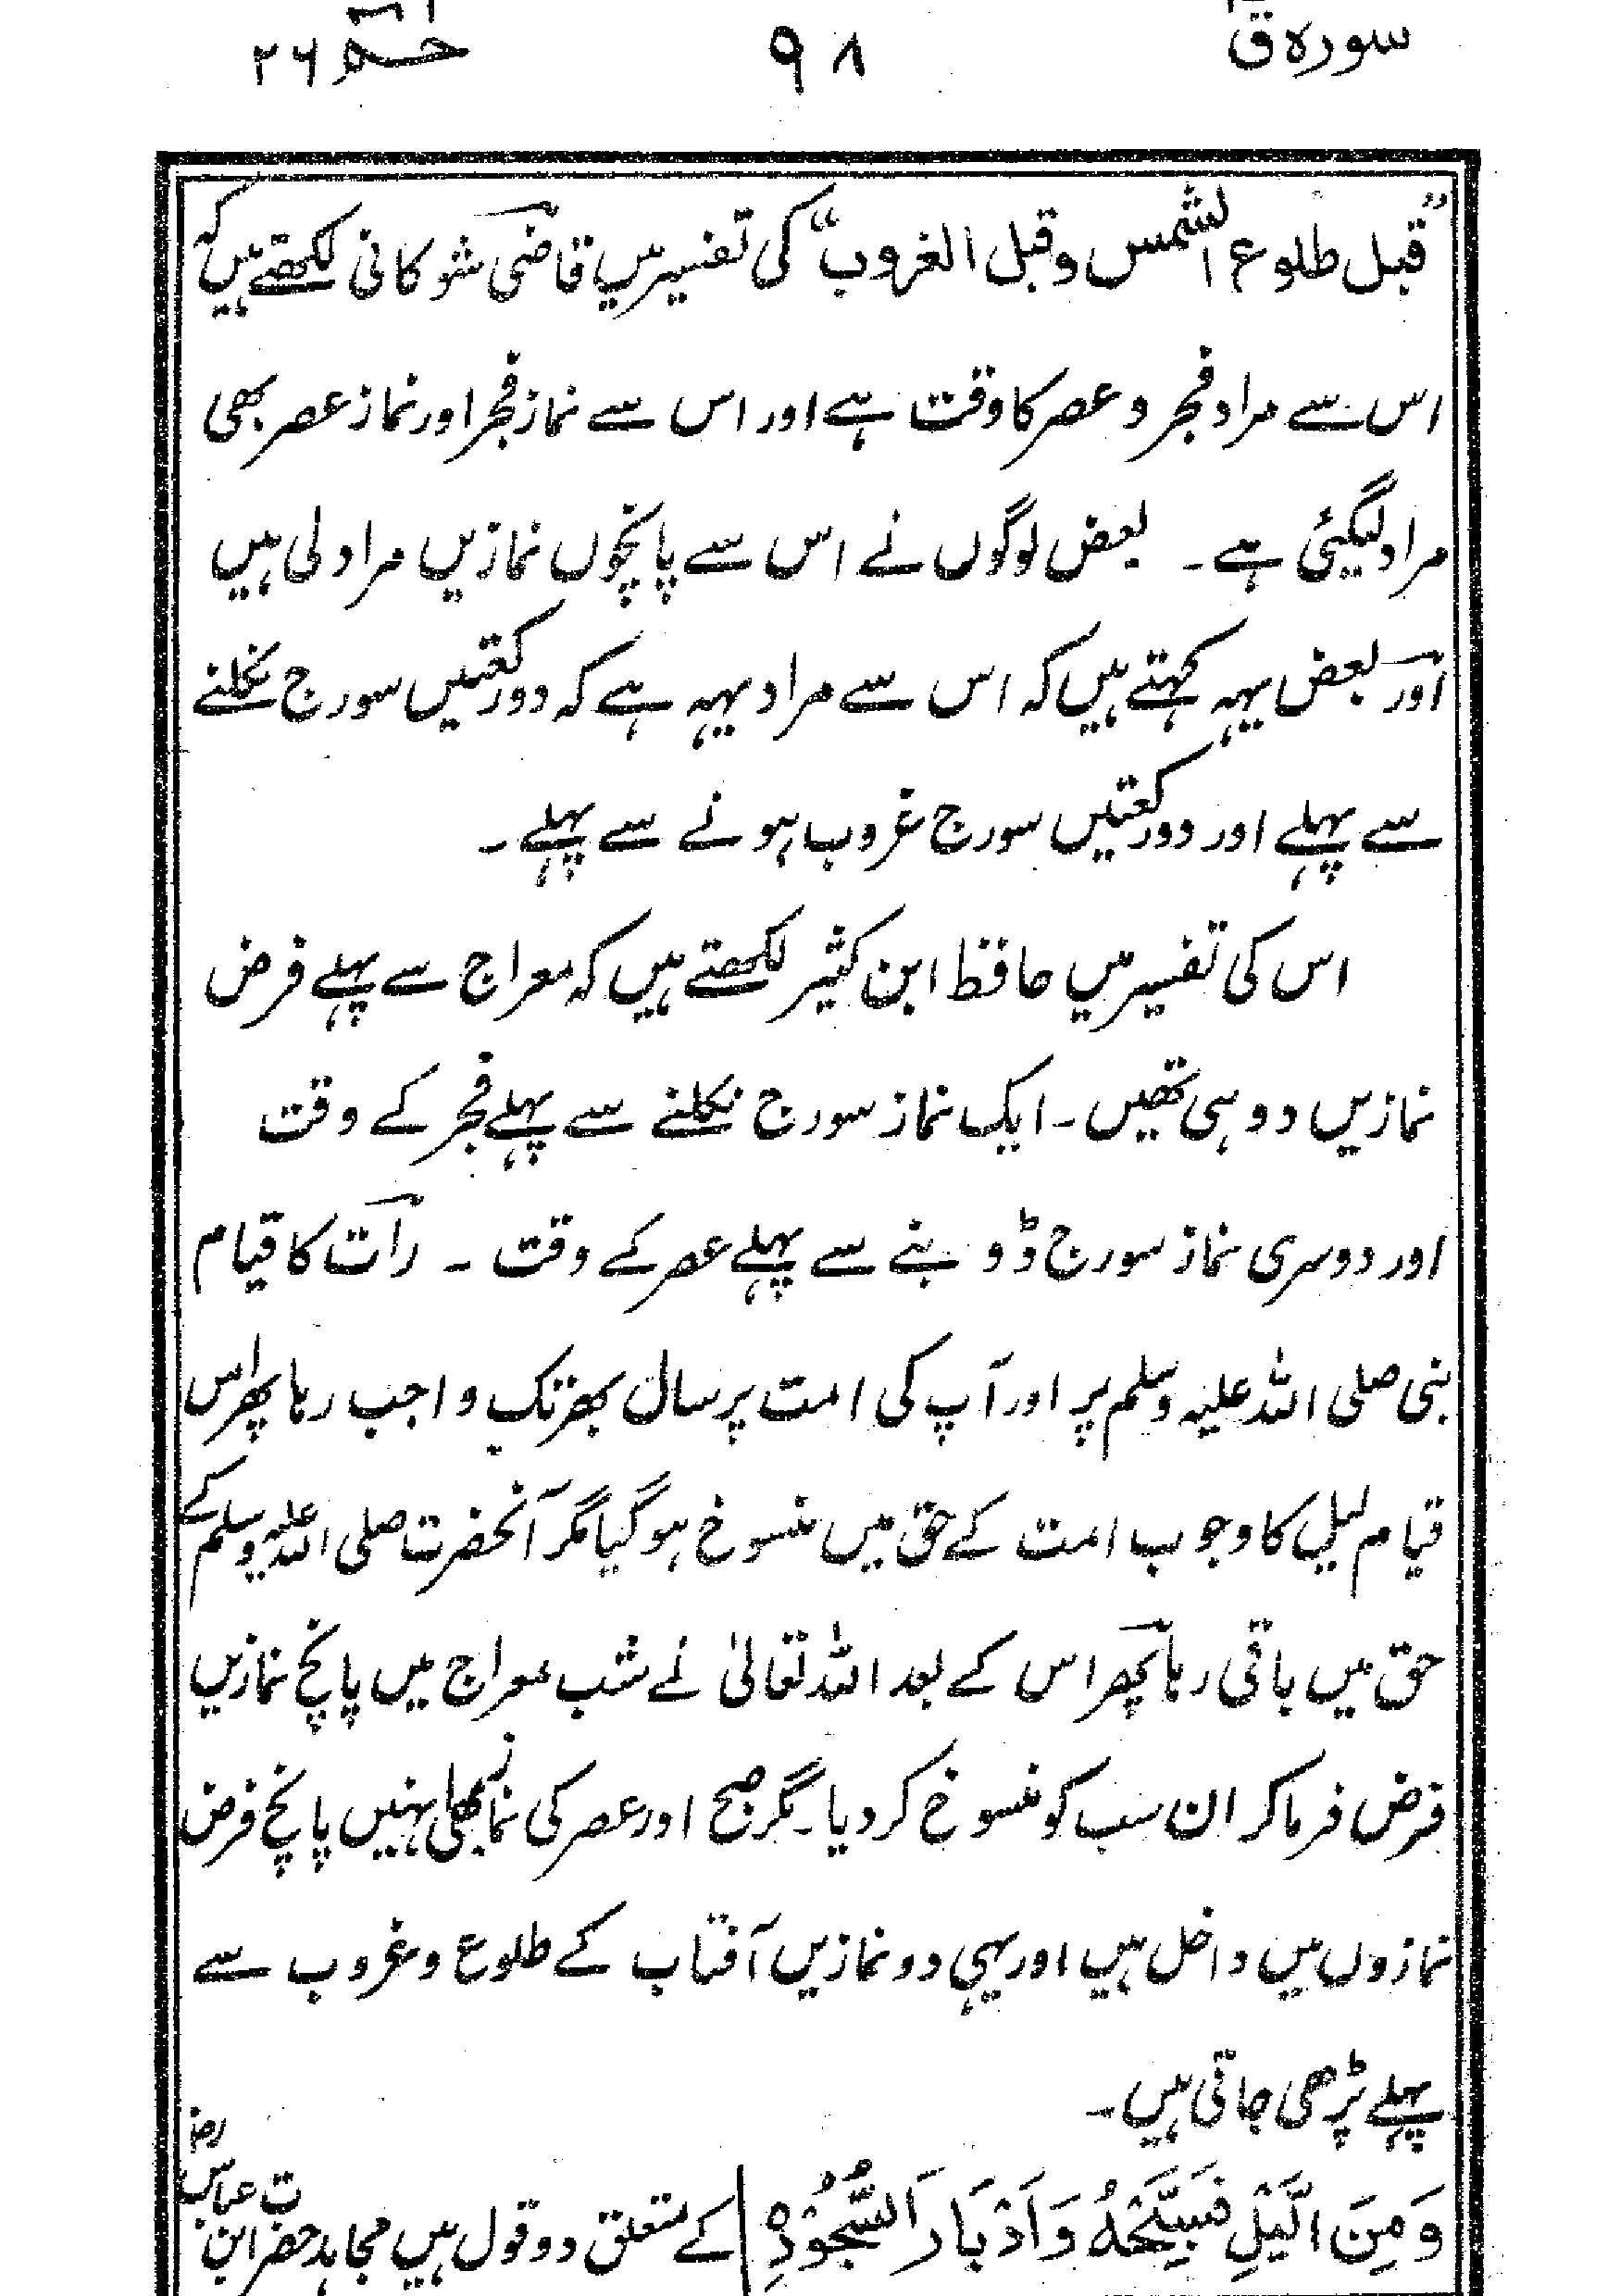 سورہ ق ۹۸ حٰمٓ ۲۶
”قبل طلوع الشمس وقبل الغروب“ کی تفسیر میں قاضی شوکانی لکھتے ہیں کہ
اس سے مراد فجر و عصر کا وقت ہے اور اس سے نماز فجر اور نماز عصر بھی
مراد لیگئی ہے۔ بعض لوگوں نے اس سے پانچوں نمازیں مراد لی ہیں
اور بعض یہہ کہتے ہیں کہ اس سے مراد یہہ ہے کہ دو رکعتیں سورج نکلنے
سے پہلے اور دو رکعتیں سورج غروب ہونے سے پہلے۔
اس کی تفسیر میں حافظ ابن کثیر لکھتے ہیں کہ معراج سے پہلے فرض
نمازیں دو ہی تھیں۔ ایک نماز سورج نکلنے سے پہلے فجر کے وقت
اور دوسری نماز سورج ڈوبنے سے پہلے عصر کے وقت ۔ رات کا قیام
نبی صلی اللہ علیہ وسلم پر اور آپ کی امت پر سال بھر تک واجب رہا پھر اس
قیام لیل کا وجوب امت کے حق میں منسوخ ہو گیا مگر آنحضرت صلی اللہ علیہ وسلم کے
حق میں باقی رہا پھر اس کے بعد اللہ تعالیٰ نے شب معراج میں پانچ نمازیں
فرض فرما کر ان سب کو منسوخ کر دیا۔ مگر صبح اور عصر کی نماز بھلی نہیں پانچ فرض
نمازوں میں داخل ہیں اور یہی دو نمازیں آفتاب کے طلوع و غروب سے
پہلے پڑھی جاتی ہیں۔
وَمِنَ الَّیْلِ فَسَبِّحْهُ وَاَدْبَارَ السُّجُوْدِ | کے متعلق دو قول ہیں مجاہد حضرت ابن عباس رض